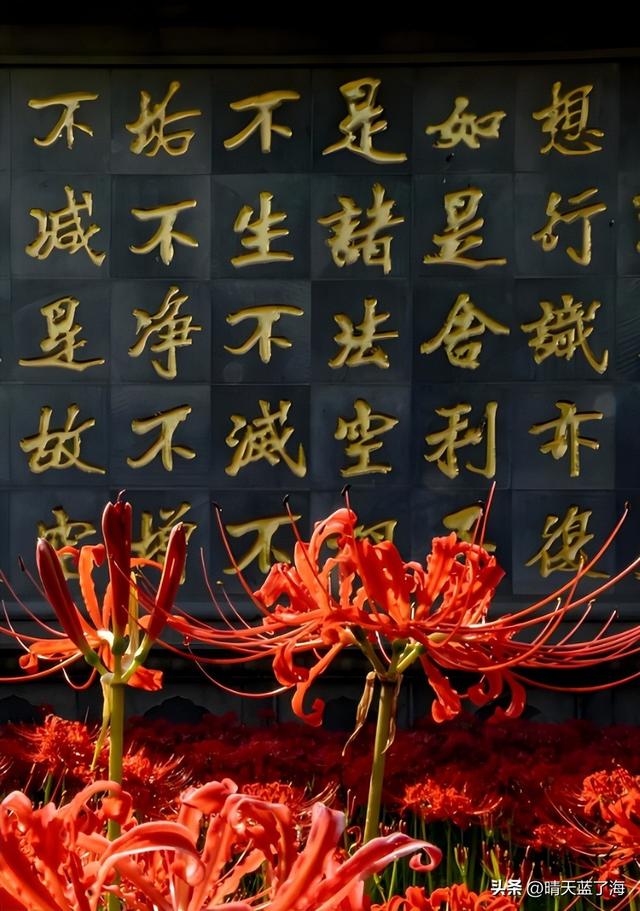 想行識亦復
如是舍利子
是諸法空相
不生不滅不
垢不净不增
不減是故空
头条 @晴天蓝了海